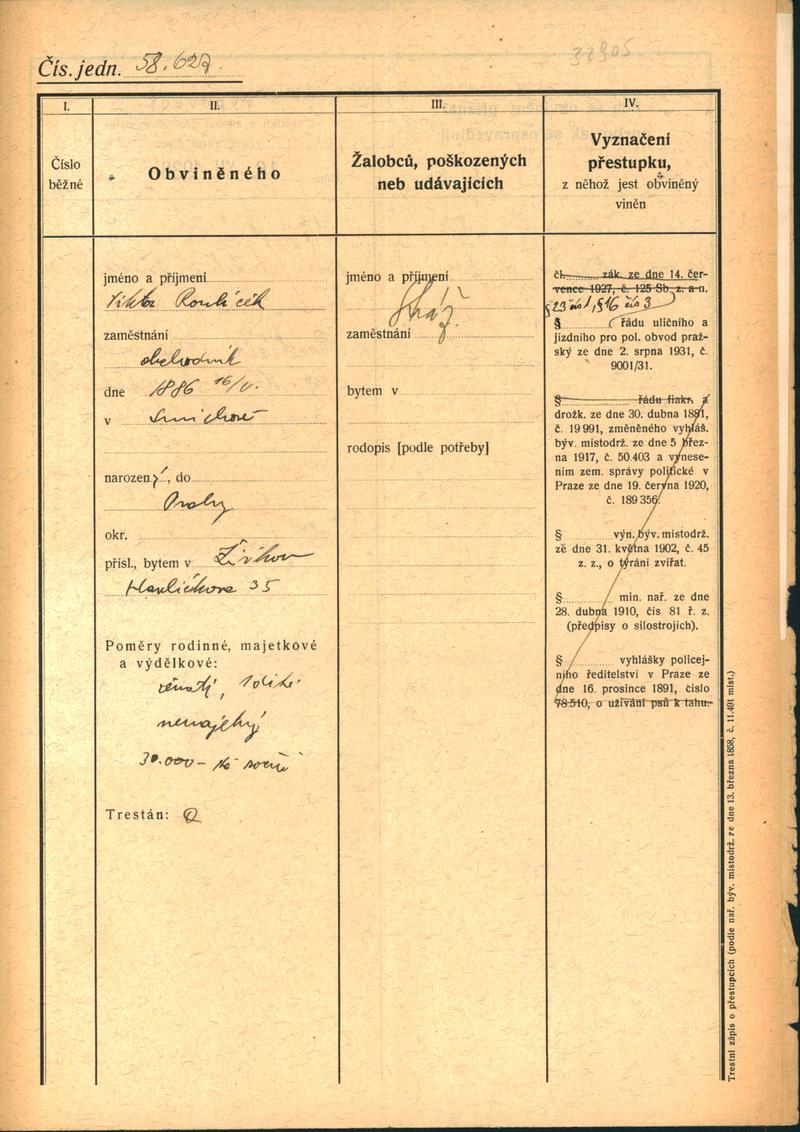 32905
Čís. jedn. 58.627
I.
II.
III.
IV.
Číslo
běžné
Obviněného
Žalobců, poškozených
neb udávajících
Vyznačení
přestupku,
z něhož jest obviněný
viněn
jméno a příjmení
Viktor Roubíček
zaměstnání
obchodník
dne 1886 16/V.
v Smíchově
narozený, do
Prahy
okr.
přísl., bytem v Žižkov
Havlíčkova 35
Poměry rodinné, majetkové
a výdělkové:
ženatý, 1 dítě
nemajetný
30.000– Kč ročně
Trestán: 0
jméno a příjmení
Stráž
zaměstnání
bytem v
rodopis [podle potřeby]
čl. zák. ze dne 14. čer-
vence 1927, č. 125 Sb. z. a n.
§ 23 čís 1, § 16 čís 3
§ řádu uličního a
jízdního pro pol. obvod praž-
ský ze dne 2. srpna 1931, č.
9001/31.
§ řádu fiakr. a
drožk. ze dne 30. dubna 1881,
č. 19 991, změněného vyhláš.
býv. místodrž. ze dne 5 břez-
na 1917, č. 50.403 a vynese-
ním zem. správy politické v
Praze ze dne 19. června 1920,
č. 189 356.
§ výn. býv. místodrž.
ze dne 31. května 1902, č. 45
z. z., o týrání zvířat.
§ min. nař. ze dne
28. dubna 1910, čís 81 ř. z.
(předpisy o silostrojích).
§ vyhlášky policej-
ního ředitelství v Praze ze
dne 16. prosince 1891, číslo
78.510, o užívání psů k tahu.
Trestní zápis o přestupcích (podle nař. býv. místodrž. ze dne 13. března 1858, č. 11.491 míst.)